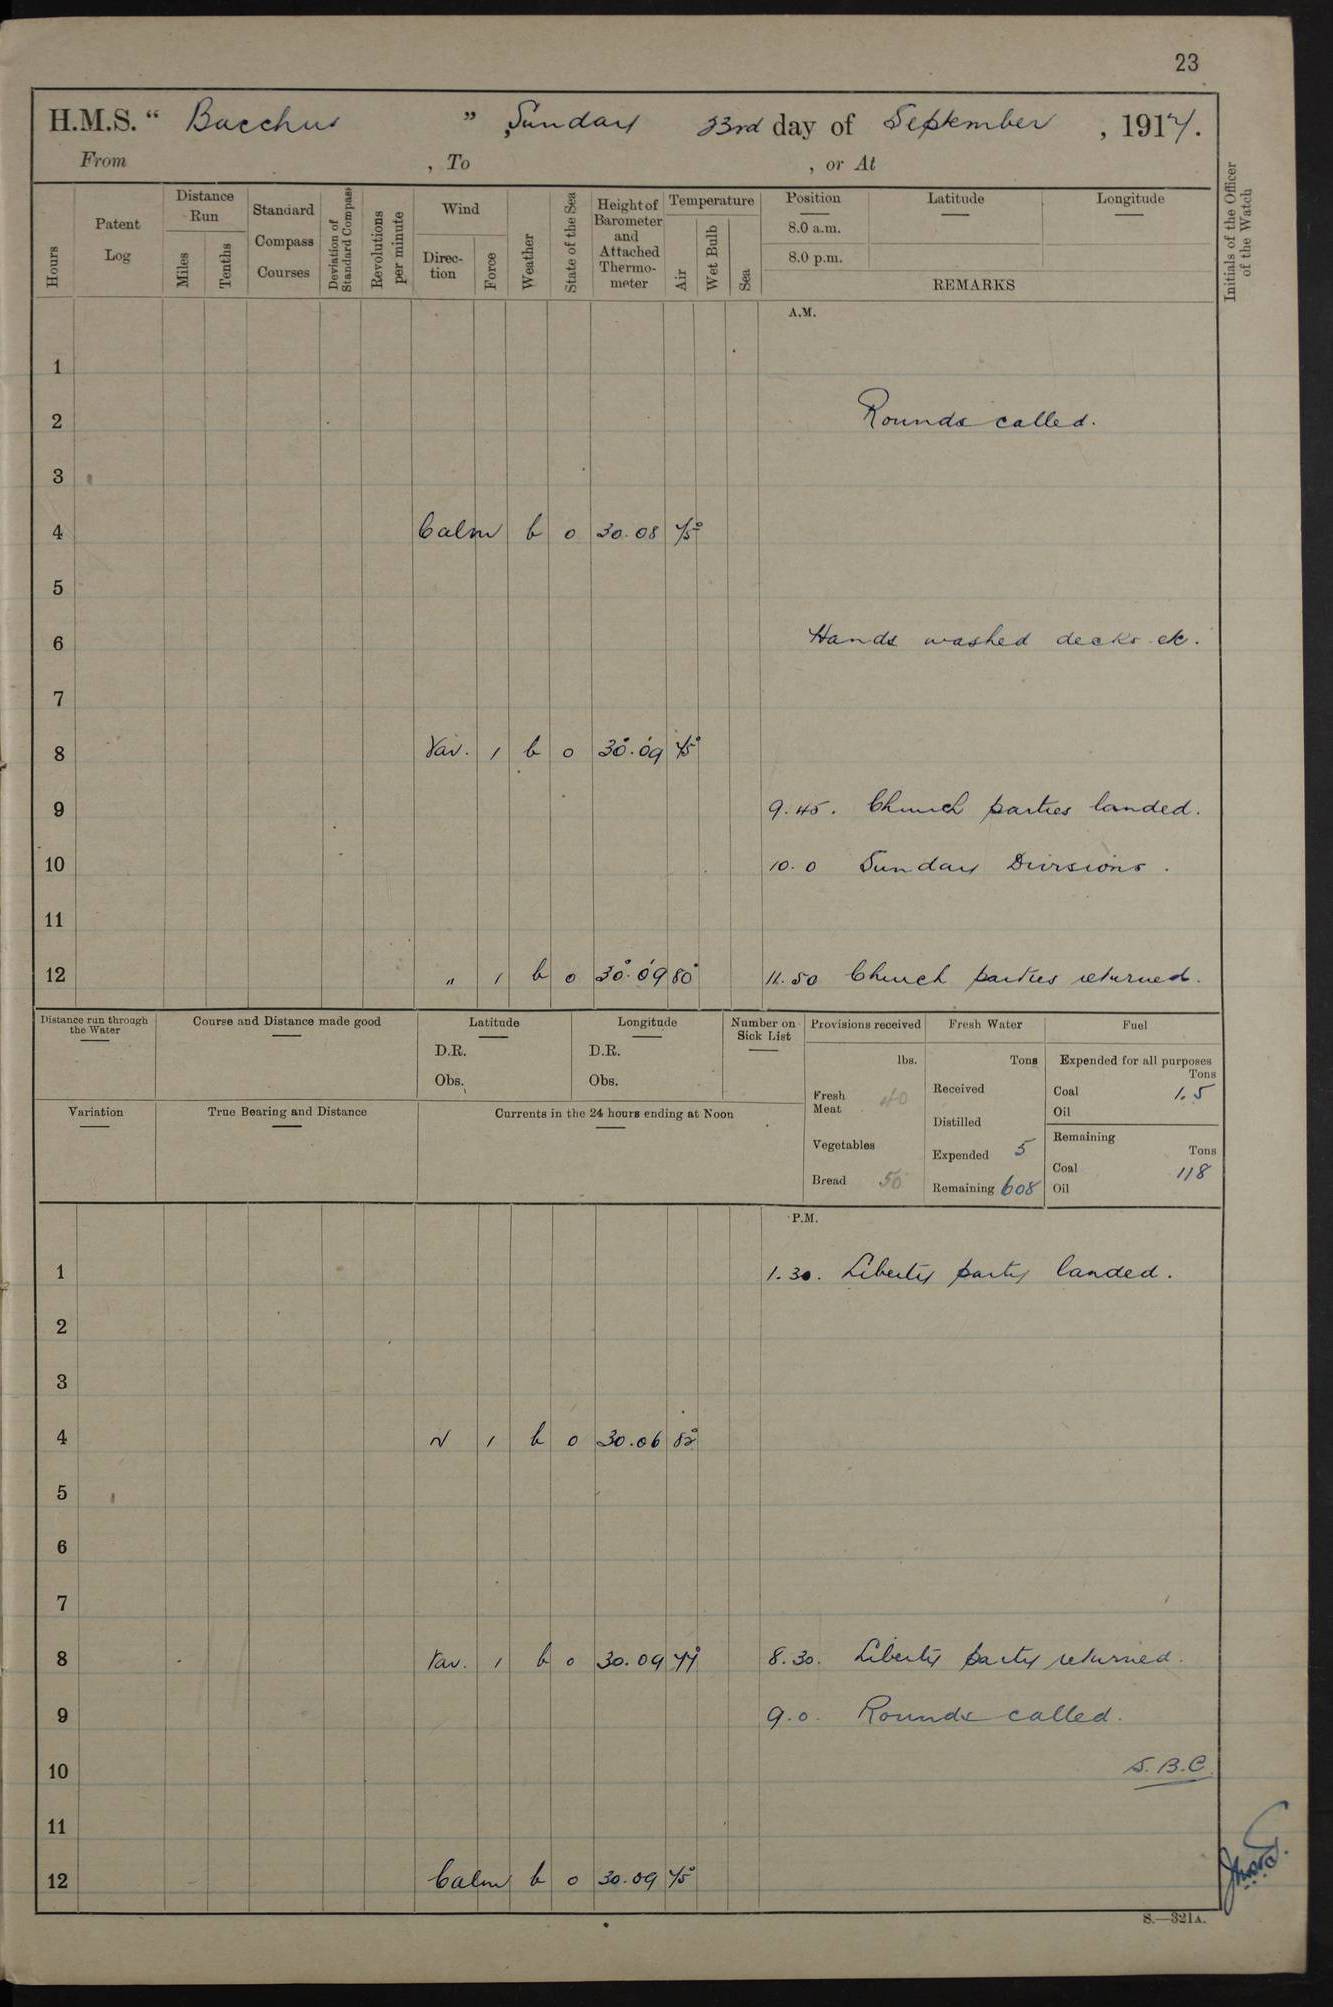 23
H.M.S. “ Bacchus ” , Sunday 23rd day of September , 1917.
From , To , or At
Hours
Patent Log
Distance Run
Miles
Tenths
Standard Compass Courses
Deviation of Standard Compass
Revolutions per minute
Wind
Direction
Force
Weather
State of the Sea
Height of Barometer and Attached Thermometer
Temperature
Air
Wet Bulb
Sea
Position
8.0 a.m.
8.0 p.m.
Latitude
Longitude
REMARKS
Initials of the Officer of the Watch
A.M.
1
2 Rounds called.
3
4 Calm b 0 30.08 75°
5
6 Hands washed decks etc.
7
8 Var. 1 b 0 30.09 75°
9 9.45. Church parties landed.
10 10.0 Sunday Divisions.
11
12 " 1 b 0 30.09 80° 11.50 Church parties returned.
Distance run through the Water
Course and Distance made good
Latitude
D.R.
Obs.
Longitude
D.R.
Obs.
Number on Sick List
Provisions received
lbs.
Fresh Meat 40
Vegetables
Bread 50
Fresh Water
Tons
Received
Distilled
Expended 5
Remaining 608
Fuel
Expended for all purposes
Tons
Coal 1.5
Oil
Remaining
Tons
Coal 118
Oil
Variation
True Bearing and Distance
Currents in the 24 hours ending at Noon
P.M.
1 1.30. Liberty party landed.
2
3
4 N 1 b 0 30.06 82°
5
6
7
8 Var. 1 b 0 30.09 77° 8.30. Liberty party returned.
9 9.0. Rounds called.
10 S.B.C.
11
12 Calm b 0 30.09 75°
S.—321A.